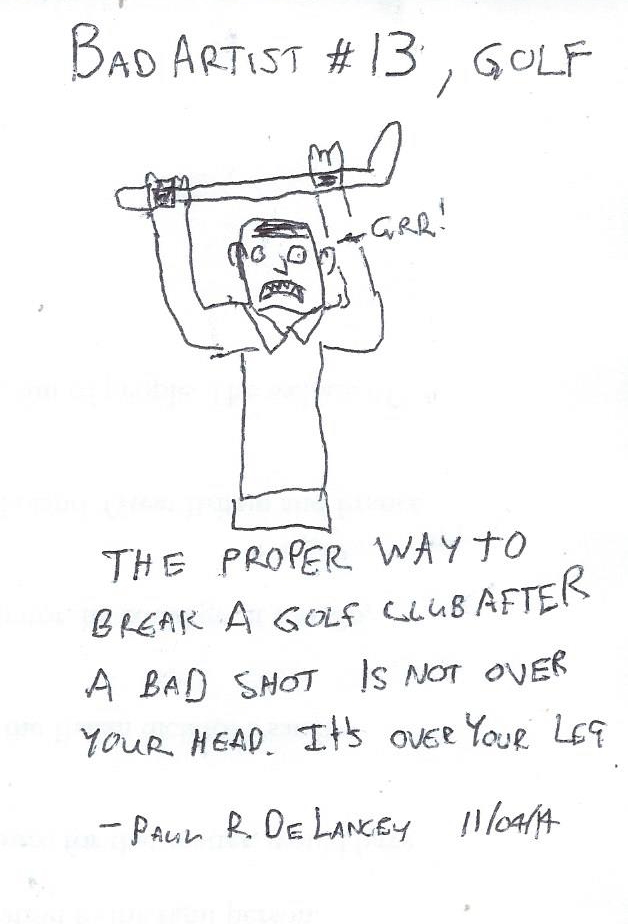 BAD ARTIST #13, GOLF
GRR!
THE PROPER WAY TO
BREAK A GOLF CLUB AFTER
A BAD SHOT IS NOT OVER
YOUR HEAD. It's OVER YOUR LEG
- PAUL R. DE LANCEY 11/04/14